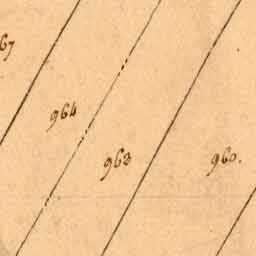 67
964
963
960.